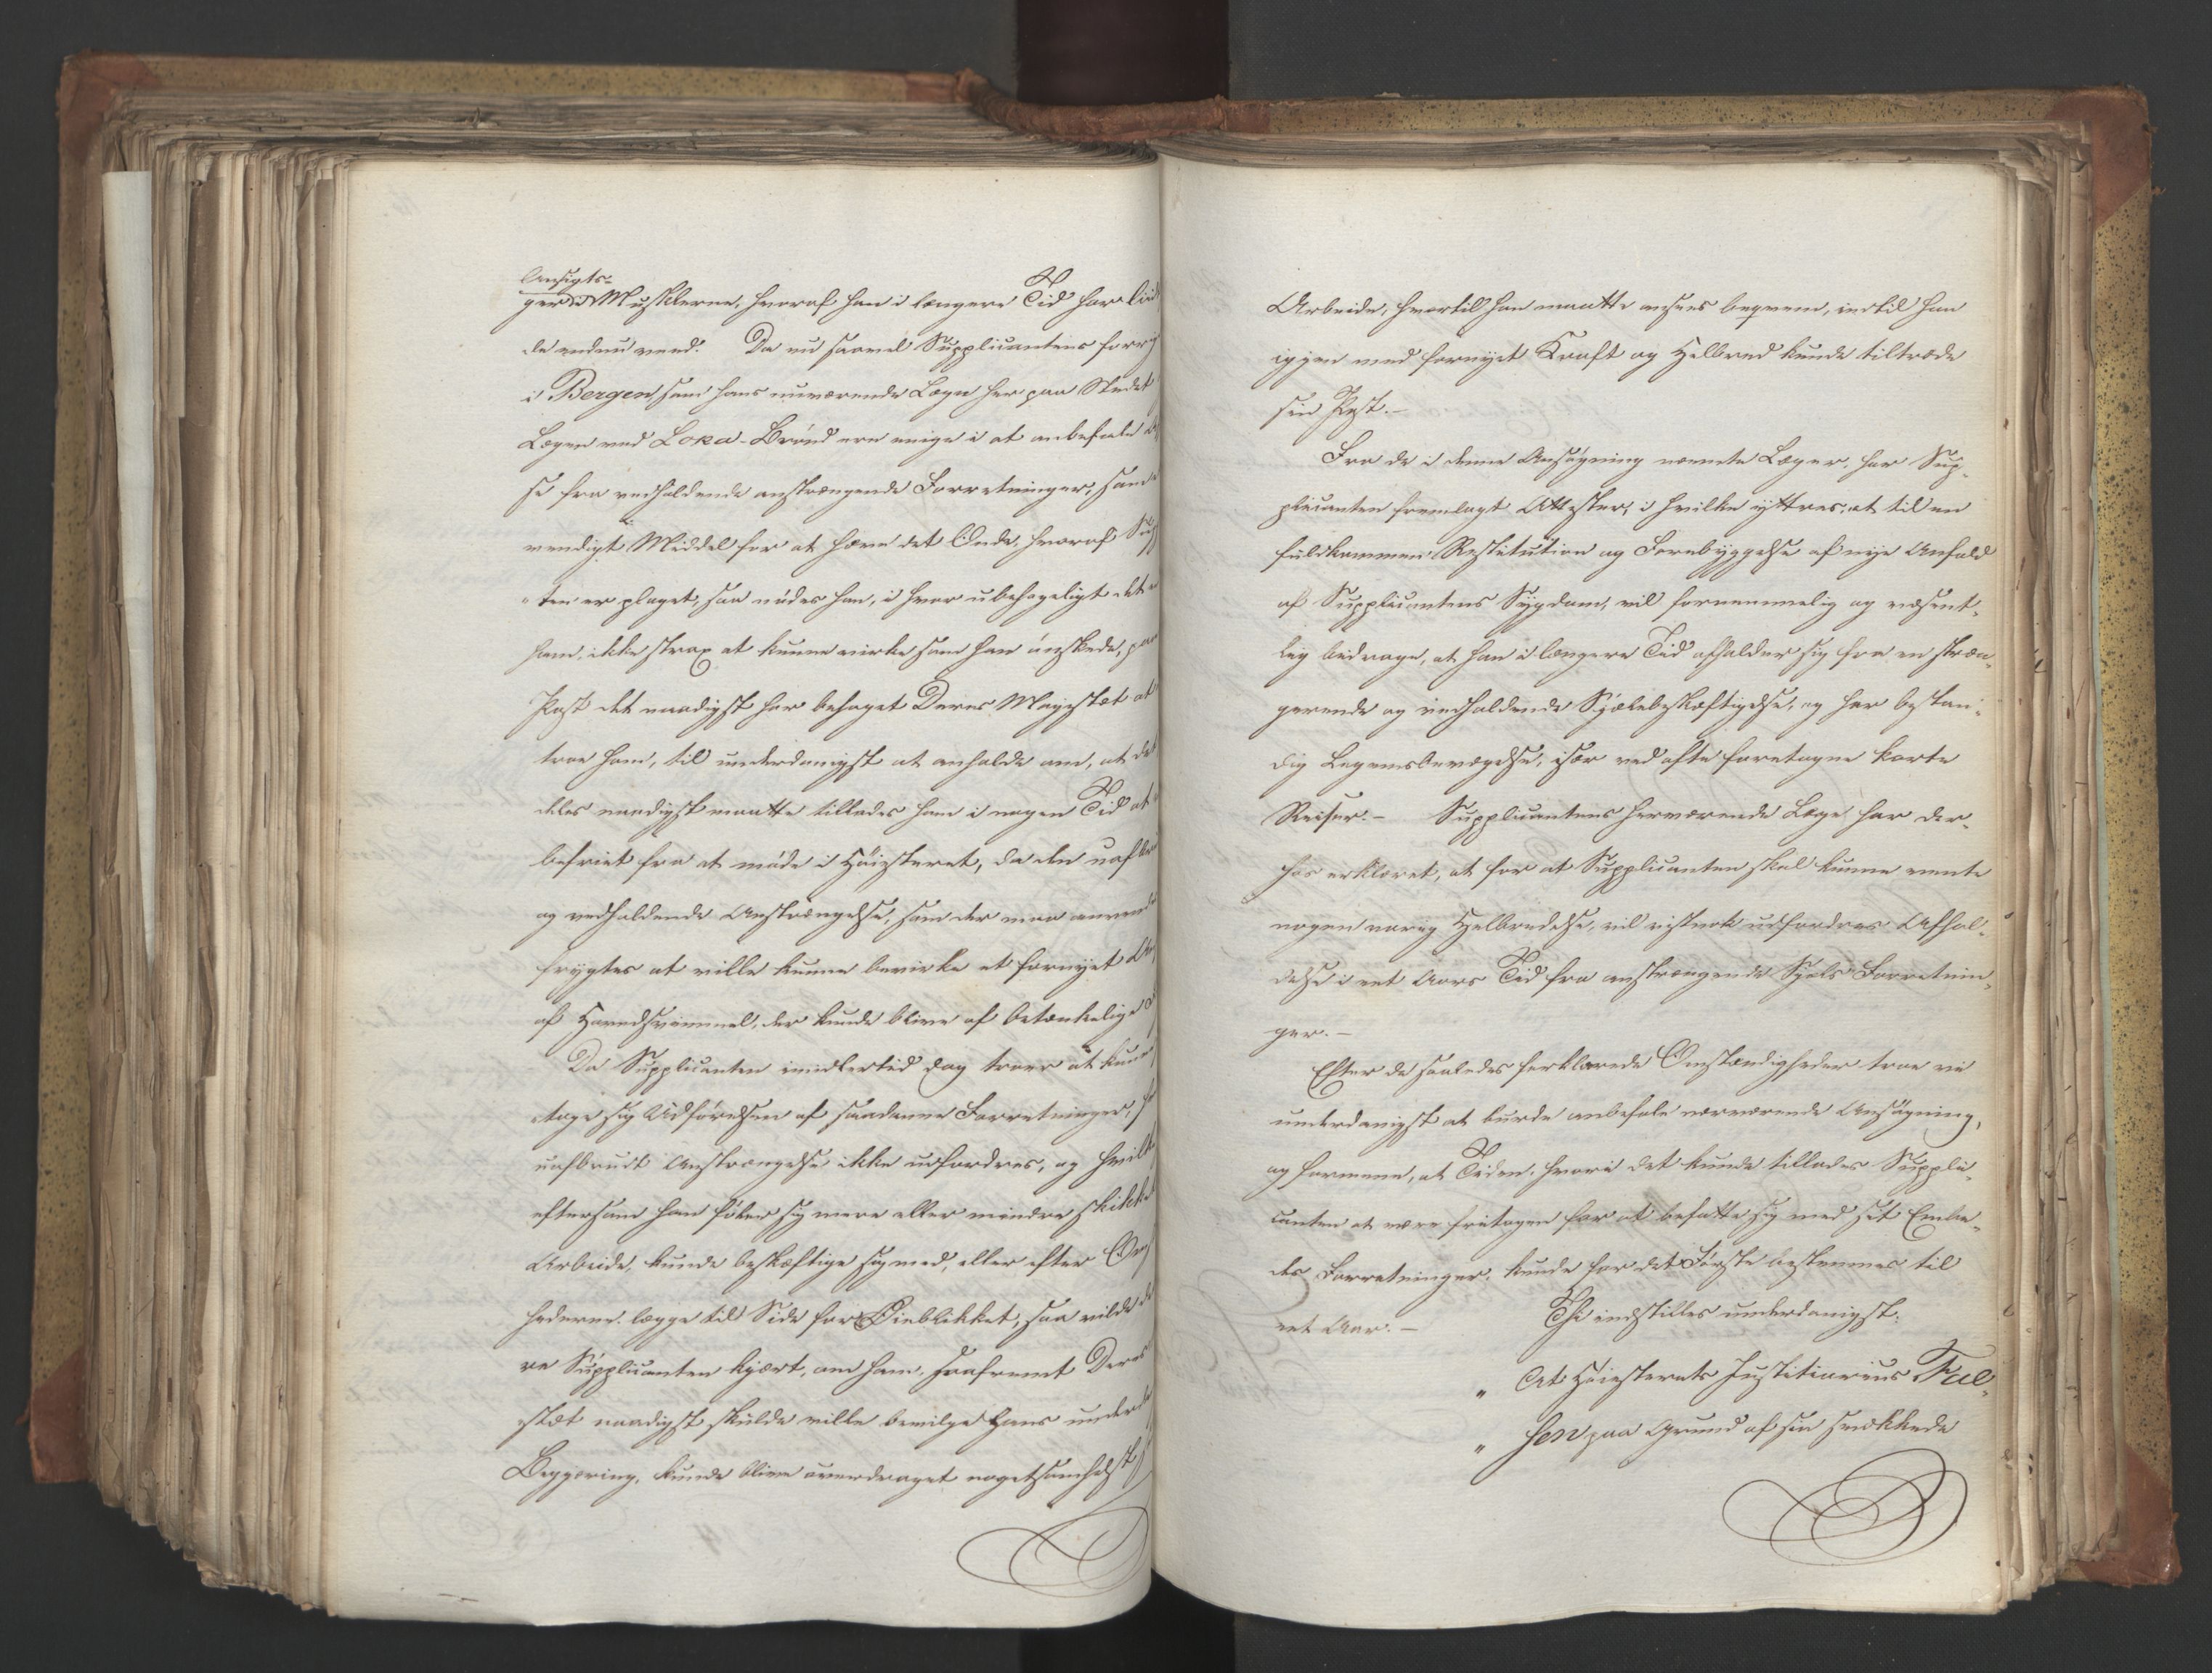 Ansigts-
Musklerne, hvoraf han i længere Tid har liid
de endnu veed. Da nu saavel Supplicantens forrig
i Bergen, som hans nuværende Læge her paa Stedet
Lægen ved Loka-Brønd ere enige i at anbefale
se fra vedholdende anstrængende Forretninger, som
vendigt Middel for at hæve det Onde, hvoraf Sup
ten er plaget, saa nødes han, i hvor ubehageligt det
ham, ikke strax at kunne virke som han ønskede, paa
Post det naadigst har behaget Deres Majestæt at
troe ham, til underdanigst at anholde om, at det
deles naadigst maatte tillades ham i nogen Tid at
befriet fra at møde i Høiesteret, da den uafbru
og vedholdende Anstrængelse, som der maa anvend
frygtes at ville kunne bevirke et fornyet
af Hovedsvimmel, der kunde blive af betænkelige
Da Supplicanten imidlertid dog troer at kunn
tage sig Udførelsen af saadanne Forretninger,
uafbrudt Anstrængelse ikke udfordres, og hvilk
eftersom han føler sig mere eller mindre skikket
Arbeide, kunde beskæftige sig med, eller efter Om
hederne lægge til Side for Øieblikket, saa vilde de
re Supplicanten kjært, om ham, saafremt Deres
stæt naadigst skulde ville bevilge Hans underd
Begjæring, kunde blive overdraget nogetsomhelst
Arbeide, hvortil han maatte ansees beqvem, indtil han
igjen med fornyet Kraft og Helbred kunde tiltræde
sin Post.-
Fra de i denne Ansøgning nævnte Læger, har Sup-
plicanten fremlagt Attester, i hvilke yttres, at til en
fuldkommen Restitution og Forebyggelse af nye Anfald
af Supplicantens Sygdom, vil fornemmelig og væsent-
lig bidrage, at han i længere Tid afholder sig fra en stræn-
gerende og vedholdende Sjælebeskæftigelse, og har bestan-
dig Legemsbevægelse, især ved ofte foretagne korte
Reiser.- Supplicantens herværende Læge har der-
hos erklæret, at for at Supplicanten skal kunne vente
nogen varig Helbredelse, vil vistnok udfordres Afhol-
delse i eet Aars Tid fra anstrængende Sjels Forretnin-
ger.-
Efter de saaledes forklarede Omstændigheder troe vi
underdanigst at burde anbefale nærværende Ansøgning,
og formene, at Tiden, hvori det kunde tillades Suppli-
canten at være fritagen for at befatte sig med sit Embe-
des Forretninger, kunde for det Første bestemmes til
eet Aar.- Thi indstilles underdanigst:
" At Høiesterets Justitiarius Fal-
" sen paa Grund af sin svækkede